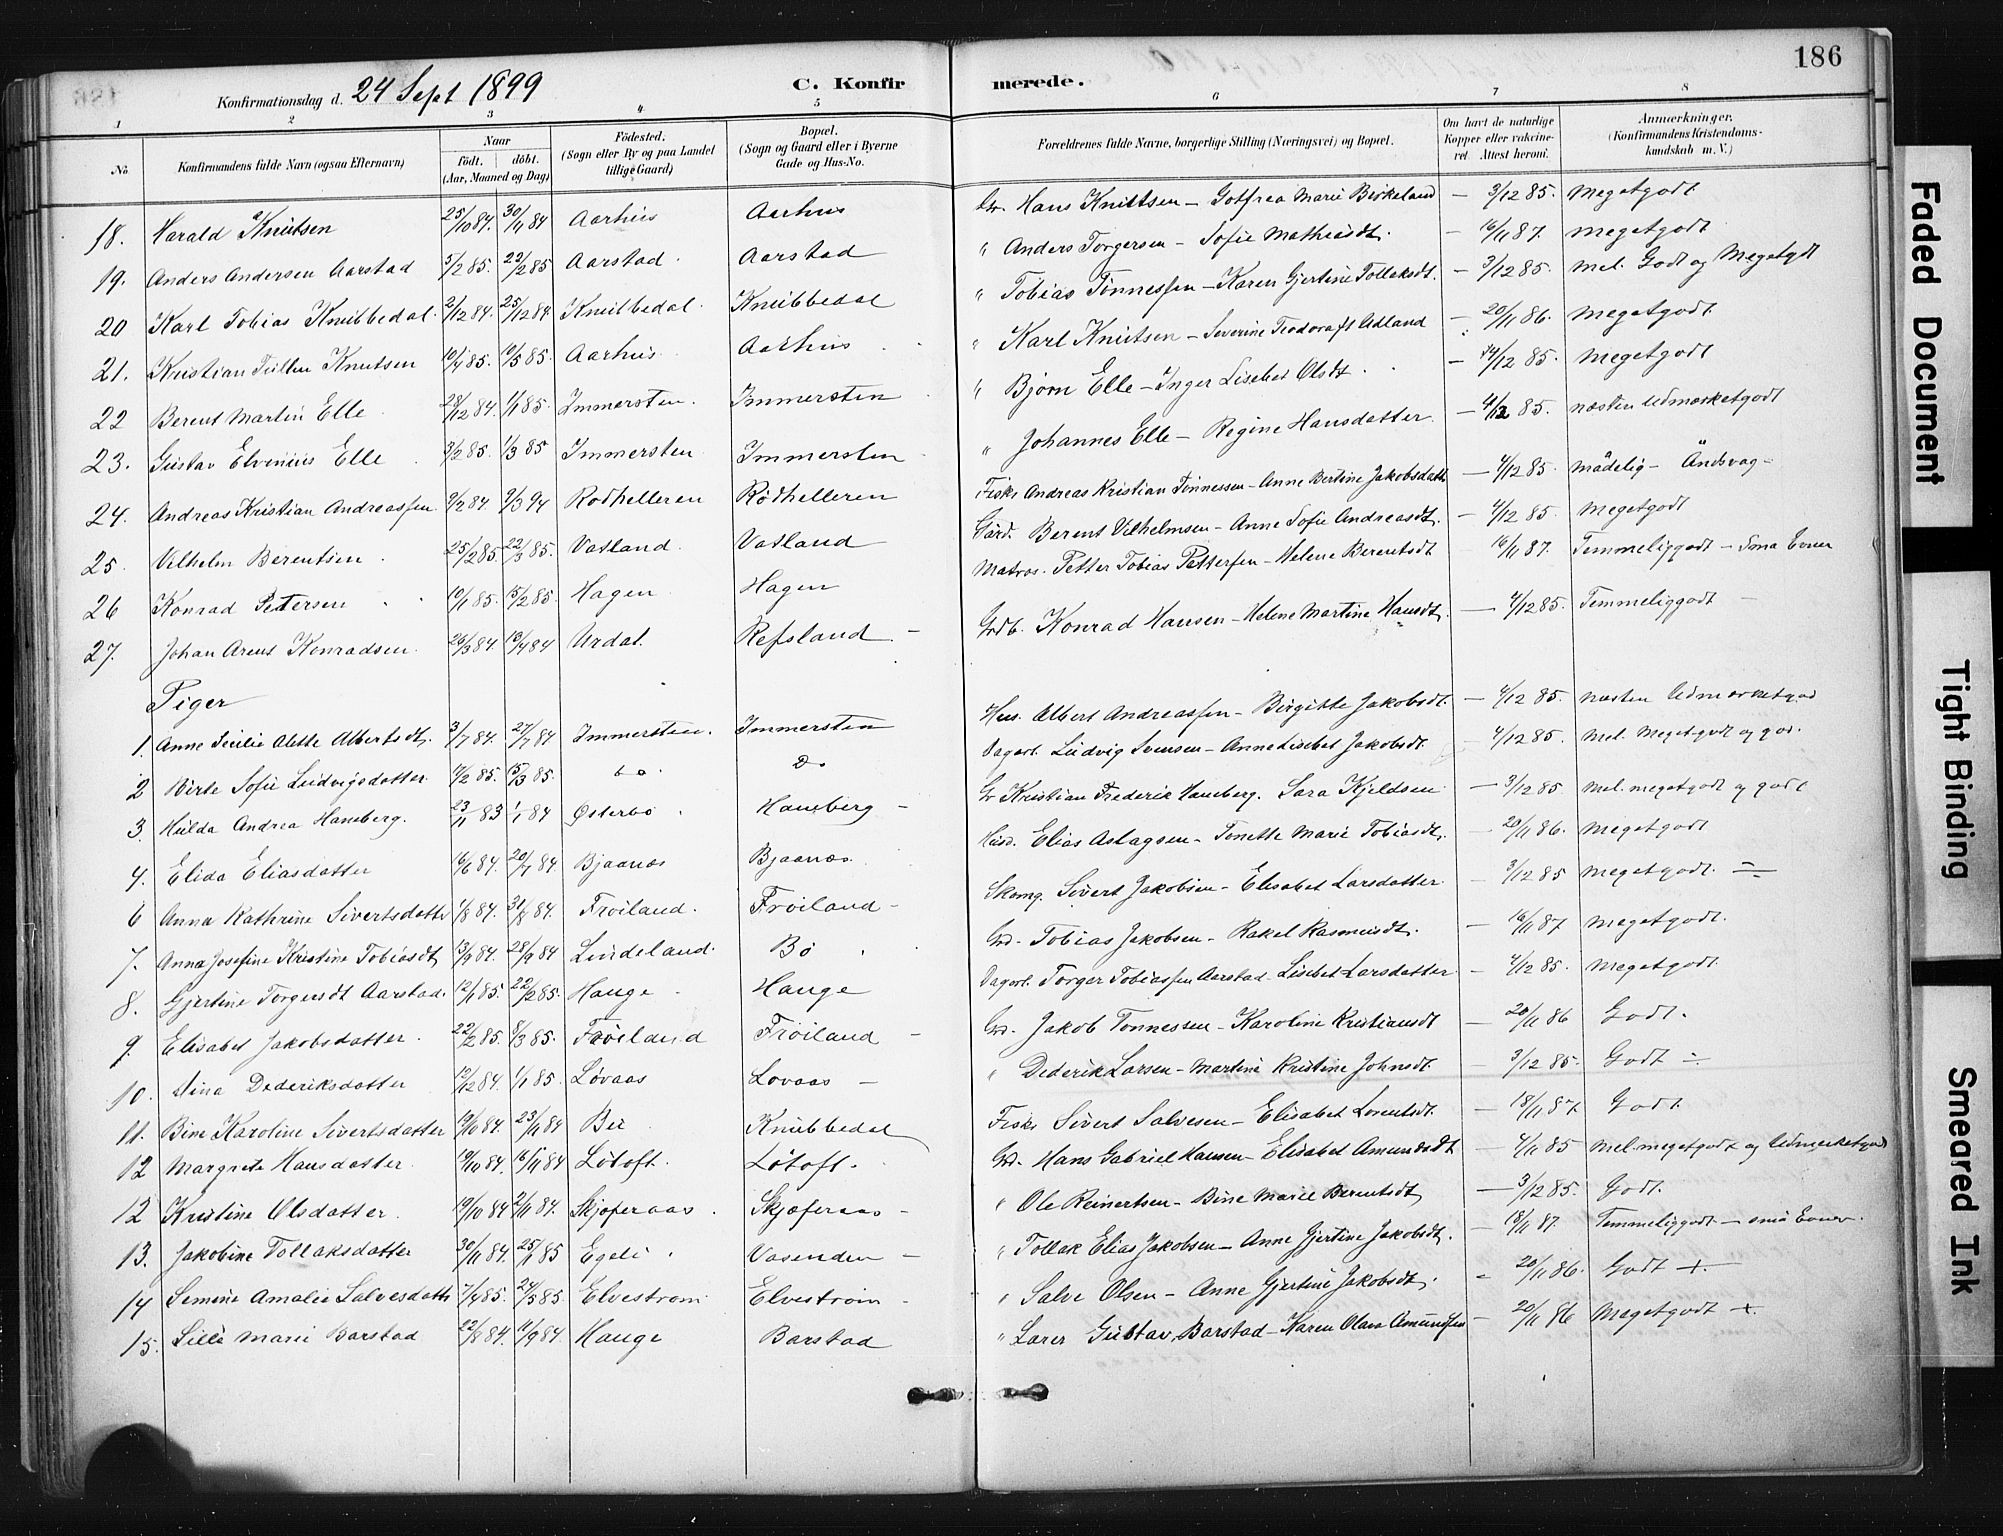 186
Konfirmationsdag d. 24 Sept 1899 C. Konfirmerede.
1 2 3 4 5 6 7 8
No. Konfirmandens fulde Navn (ogsaa Efternavn) Naar født. døbt. (Aar, Maaned og Dag) Fødested. (Sogn eller By og paa Landet tillige Gaard) Bopæl. (Sogn og Gaard eller i Byerne Gade og Hus-No. Forældrenes fulde Navne, borgerlige Stilling (Næringsvei) og Bopæl. Om havt de naturlige Kopper eller vakcineret. Attest herom. Anmærkninger. (Konfirmandens Kristendomskundskab m. V.)
18. Harald Knutsen 25/10 84. 30/11 84 Aarhus Aarhus Hans Knutsen - Gotfrea Marie Birkeland - 3/12 85. Megetgodt
19. Anders Andersen Aarstad 5/2 85. 22/2 85 Aarstad. Aarstad " Anders Torgersen - Sofie Mathiasdt. - 16/11 87. Megetgodt
20 Karl Tobias Knubbedal. 2/12 84. 25/12 84. Knubbedal. Knubbedal " Tobias Tønnessen - Karen Gjertine Tollaksdt. - 3/12 85. Mel. Godt og Megetgdt
21. Kristian Knutsen 10/4 85. 10/5 85. Aarhus. Aarhus " Karl Knutsen - Severine Teodora Udland - 20/11 86. Megetgodt
22 Berent Martin Elle 28/12 84. 1/1 85. Immersten. Immersten " Bjørn Elle - Inger Lisebet Olsdt. - 14/12 85. Megetgodt
23. Gustav Elvenius Elle 3/2 85. 1/3 85 Immersten Immersten " Johannes Elle - Regine Hansdatter - 4/12 85. næsten Udmærketgodt
24. Andreas Kristian Andreassen 9/2 84. 9/3 94 Rødhelleren Rødhelleren Fisk. Andreas Kristian Tønnessen - Anne Bertine Jakobsdatt - 4/12 85. mådelig - Åndsvag -
25. Vilhelm Berentsen 25/2 85. 22/3 85. Vatland. Vatland Gård. Berent Vilhelmsen - Anne Sofie Andreasdt. - 4/12 85. Megetgodt
26 Konrad Petersen 10/1 85. 15/2 85. Hagen Hagen Matros. Petter Tobias Pettersen - Helene Berentsdt - 16/11 87. Temmeliggodt - Små Evner
27. Johan Arent Konradsen. 26/3 84. 10/4 84 Urdal. Refsland. - Grdb. Konrad Hansen - Helene Martine Hansdt. - 4/12 85. Temmeliggodt -
Piger
1. Anne Alette Albertsdt. 3/7 84. 27/7 84 Immersten. Immersten Hus. Albert Andreassen - Birgitte Jakobsdt. - 4/12 85. Næsten Udmærketgod
2 Birte Sofie Ludvigsdatter 7/2 85. 15/3 85. do. Do Dagarb. Ludvig Svensen - Anne Lisebet Jakobsdt. 4/12 85. Mel. Megetgodt og god.
3. Hulda Andrea Haneberg. 23/11 83 1/1 84 Østerbø. Haneberg - Kristian Frederik Haneberg. Sara Kjeldsen - 3/12 85 Mel. megetgodt og godt
4. Elida Eliasdatter 16/6 84. 20/7 84 Bjaanæs Bjaanæs. Husd. Elias Aslagsen - Tonette Marie Tobiasdt. - 20/11 86. Megetgodt
6 Anna Kathrine Sivertsdatter 1/8 84. 31/8 84. Frøiland. Frøiland - Skomg. Sivert Jakobsen - Elisabet Larsdatter - 3/12 85 Megetgodt. -
7. Anna Josefine Kristine Tobiasdt. 13/9 84. 28/9 84 Lindeland. Bø Grd. Tobias Jakobsen - Rakel Rasmusdt. - 16/11 87 Megetgodt.
8. Gjertine Torgersdt Aarstad. 12/1 85. 22/2 85. Hauge Hauge Dagarb. Torger Tobiassen Aarstad - Lisebet Larsdatter - 4/12 85. Megetgodt
9. Elisabet Jakobsdatter. 22/2 85. 8/3 85. Frøiland Frøiland - Grd. Jakob Tønnessen - Karoline Kristiansdt - 20/11 86 Godt.
10. Dederiksdatter 12/12 84. 1/1 85. Løvaas Løvaas - " Dederik Larsen - Martine Kristine Johnsdt. - 3/12 85. Godt
11. Bine Karoline Sivertsdatter 19/10 84. 23/11 84 Bu Knubbedal Fisk. Sivert Salvesen - Elisabet Lorentsdt. - 18/11 87. Godt
12 Margrete Hansdatter. 19/10 84. 16/11 84 Løtoft. Løtoft. Grd. Hans Gabriel Hansen - Elisabet Amundsdt - 4/11 85 Mel. megetgodt og Udmærketgod
12 Kristine Olsdatter. 19/10 84 2/11 84. Skjøferaas. Skjæferaas - " Ole Reinertsen - Bine Marie Berentsdt. - 3/12 85. Godt.
13. Jakobine Tollaksdatter 30/11 84. 25/1 85 Egeli. Vasenden - " Tollak Elias Jakobsen - Anne Gjertine Jakobsdt. - 18/11 87. Temmeliggodt - små Evner.
14 Semine Amalie Salvesdatt 7/4 85. 24/5 85. Elvestrøm. Elvestrøm - " Salve Olsen - Anne Gjertine Jakobsdt. - 20/11 86. Godt +
15. Lilli Marie Barstad 22/8 84. 11/9 84. Hauge Barstad " Gustav Barstad - Karen Olava Amundsen - 20/11 86 Megetgodt - +
Faded Document
Tight Binding
Smeared Ink